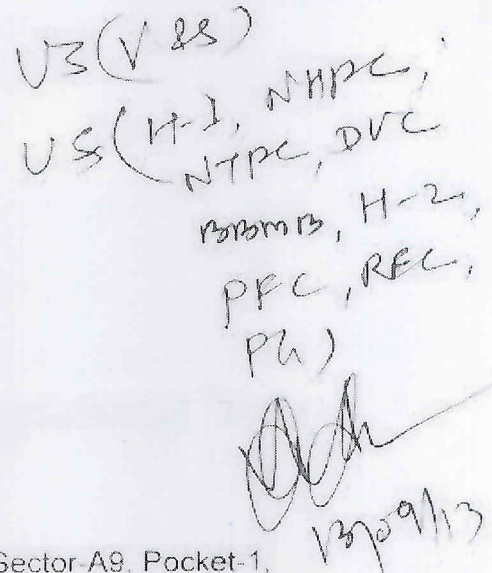 US (V &S)
US (H-I, NHPC,
NTPC, DVC
BBMB, H-2,
PFC, REC,
PG)
13/09/13
Sector-A9, Pocket-1,